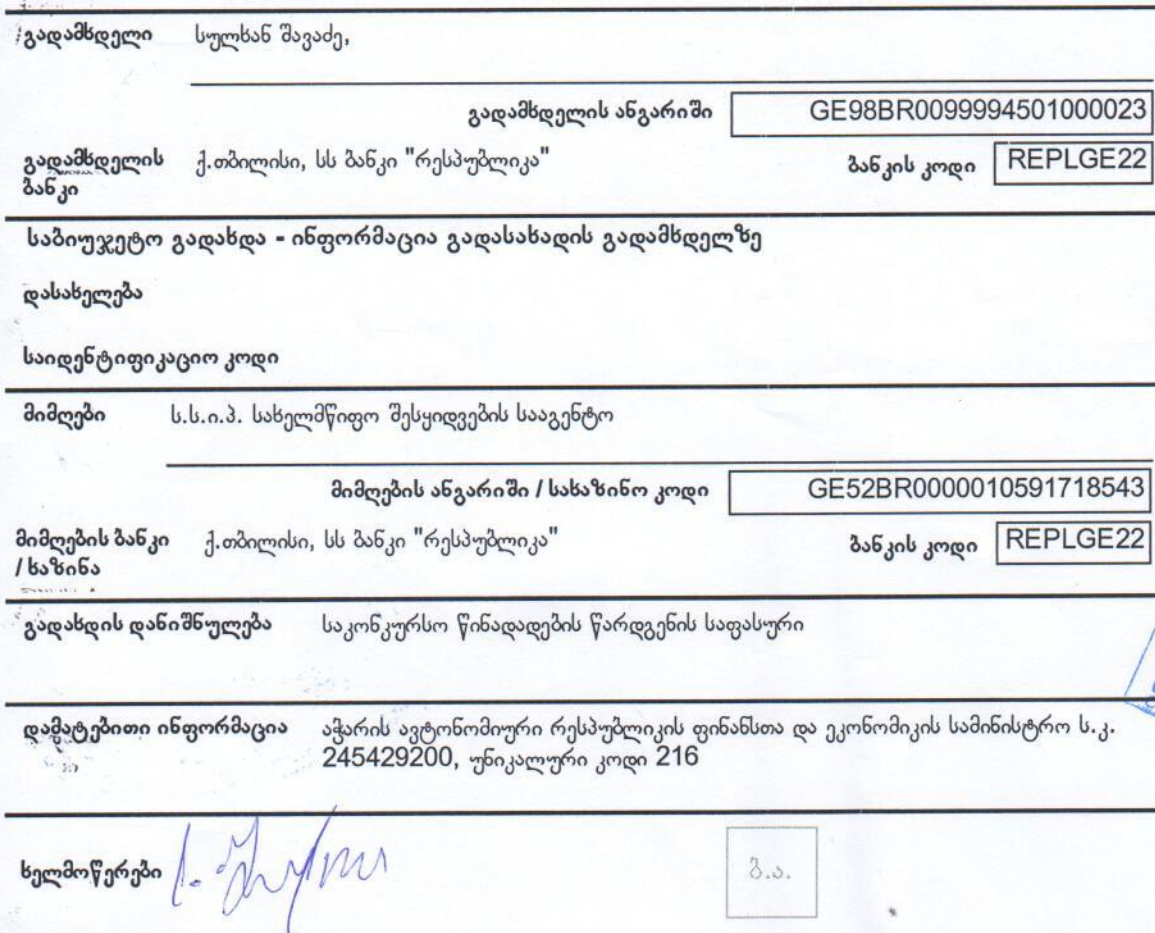 გადამხდელი სულხან შავაძე,
გადამხდელის ანგარიში GE98BR0099994501000023
გადამხდელის ბანკი ქ.თბილისი, სს ბანკი "რესპუბლიკა" ბანკის კოდი REPLGE22
საბიუჯეტო გადახდა - ინფორმაცია გადასახადის გადამხდელზე
დასახელება
საიდენტიფიკაციო კოდი
მიმღები ს.ს.ი.პ. სახელმწიფო შესყიდვების სააგენტო
მიმღების ანგარიში / სახაზინო კოდი GE52BR0000010591718543
მიმღების ბანკი / ხაზინა ქ.თბილისი, სს ბანკი "რესპუბლიკა" ბანკის კოდი REPLGE22
გადახდის დანიშნულება საკონკურსო წინადადების წარდგენის საფასური
დამატებითი ინფორმაცია აჭარის ავტონომიური რესპუბლიკის ფინანსთა და ეკონომიკის სამინისტრო ს.კ.
245429200, უნიკალური კოდი 216
ხელმოწერები ბ.ა.